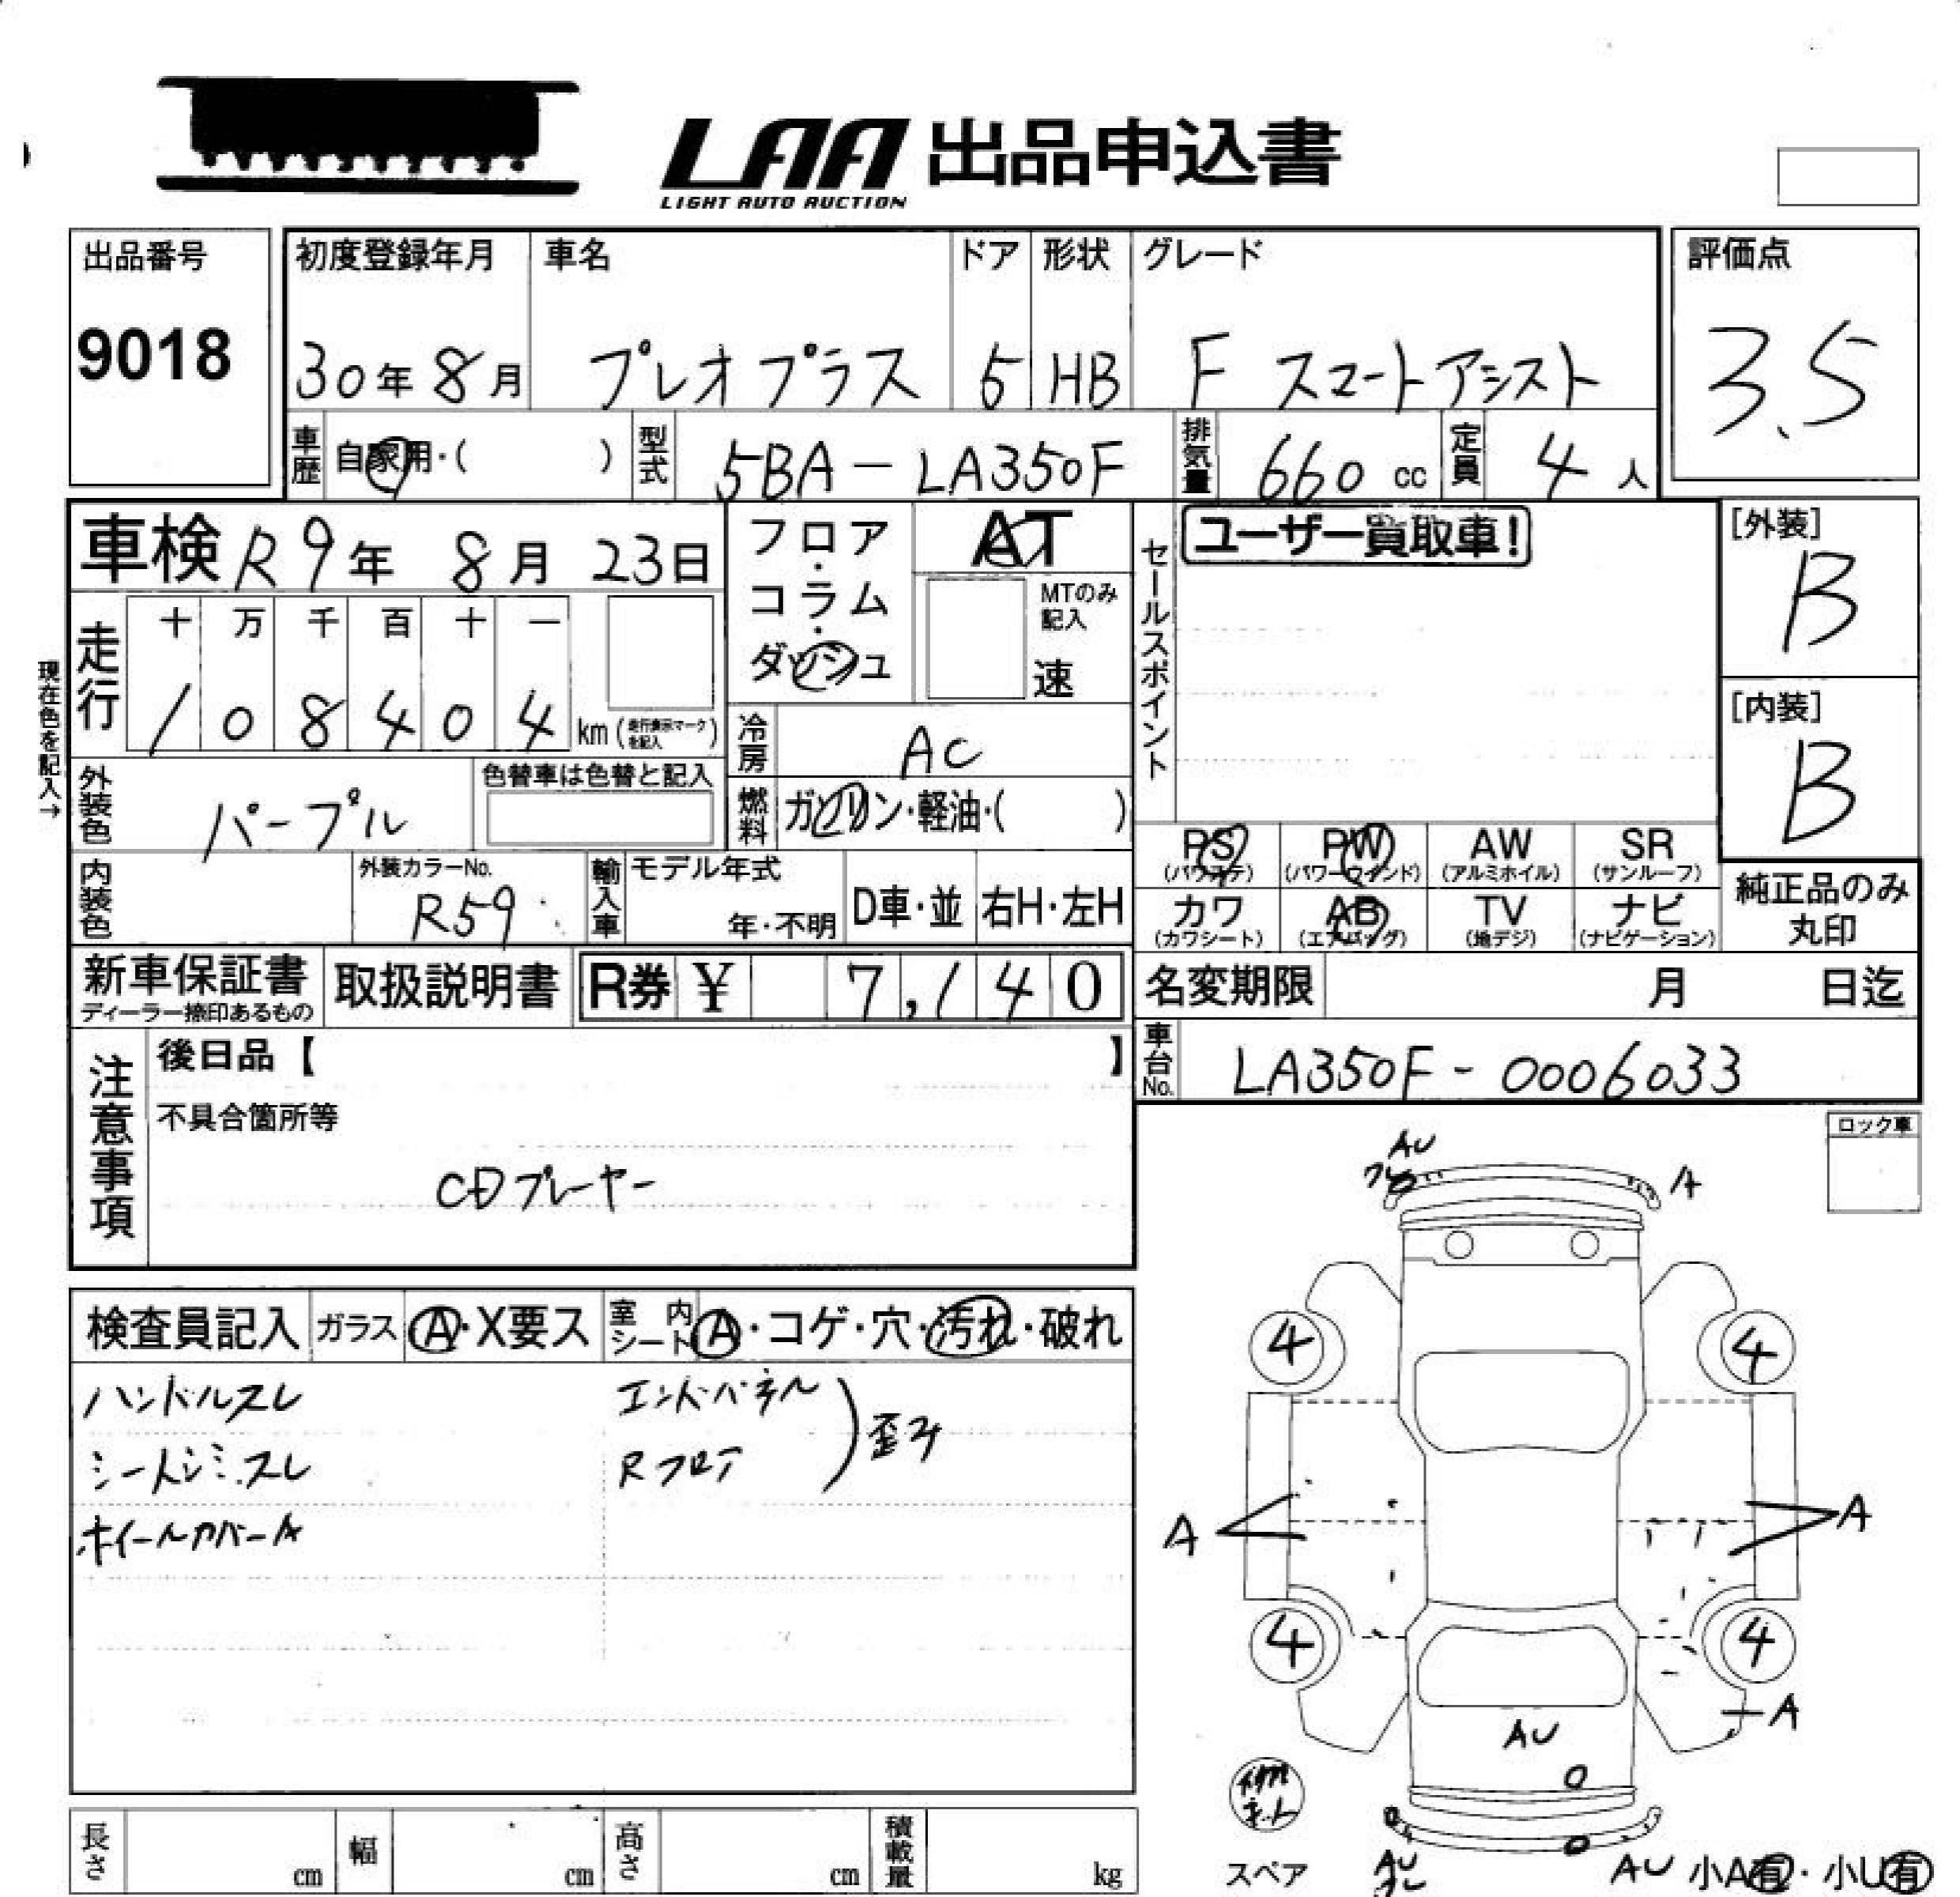 LAA 出品申込書
LIGHT AUTO AUCTION
出品番号
9018
初度登録年月
30年8月
車名
プレオプラス
ドア
5
形状
HB
グレード
F スマートアシスト
評価点
3.5
車歴 自家用・( )
型式 5BA-LA350F
排気量 660 cc
定員 4人
車検 R9年 8月 23日
現在色を記入→
走行
十 万 千 百 十 一
1 0 8 4 0 4 km (走行表示マークを記入)
フロア・コラム・ダッシュ
AT
MTのみ記入
速
冷房 AC
燃料 ガソリン・軽油・( )
外装色 パープル
色替車は色替と記入
内装色
外装カラーNo.
R59
輸入車 モデル年式
年・不明
D車・並
右H・左H
セールスポイント
ユーザー買取車!
[外装]
B
[内装]
B
PS
(パワステ)
PW
(パワーウインド)
AW
(アルミホイル)
SR
(サンルーフ)
カワ
(カワシート)
AB
(エアバッグ)
TV
(地デジ)
ナビ
(ナビゲーション)
純正品のみ
丸印
新車保証書
ディーラー捺印あるもの
取扱説明書
R券 ¥ 7,140
名変期限 月 日迄
車台No. LA350F-0006033
注意事項
後日品【 】
不具合箇所等
CDプレーヤー
ロック車
検査員記入
ガラス A・X要ス
室内シート A・コゲ・穴・汚れ・破れ
ハンドルスレ
シートシミ.スレ
ホイールカバーA
エンドパネル
Rフロア
歪み
AU
A
4
4
A
A
4
4
A
AU
スペア
AU
AU
小A有・小U有
長さ cm
幅 cm
高さ cm
積載量 kg